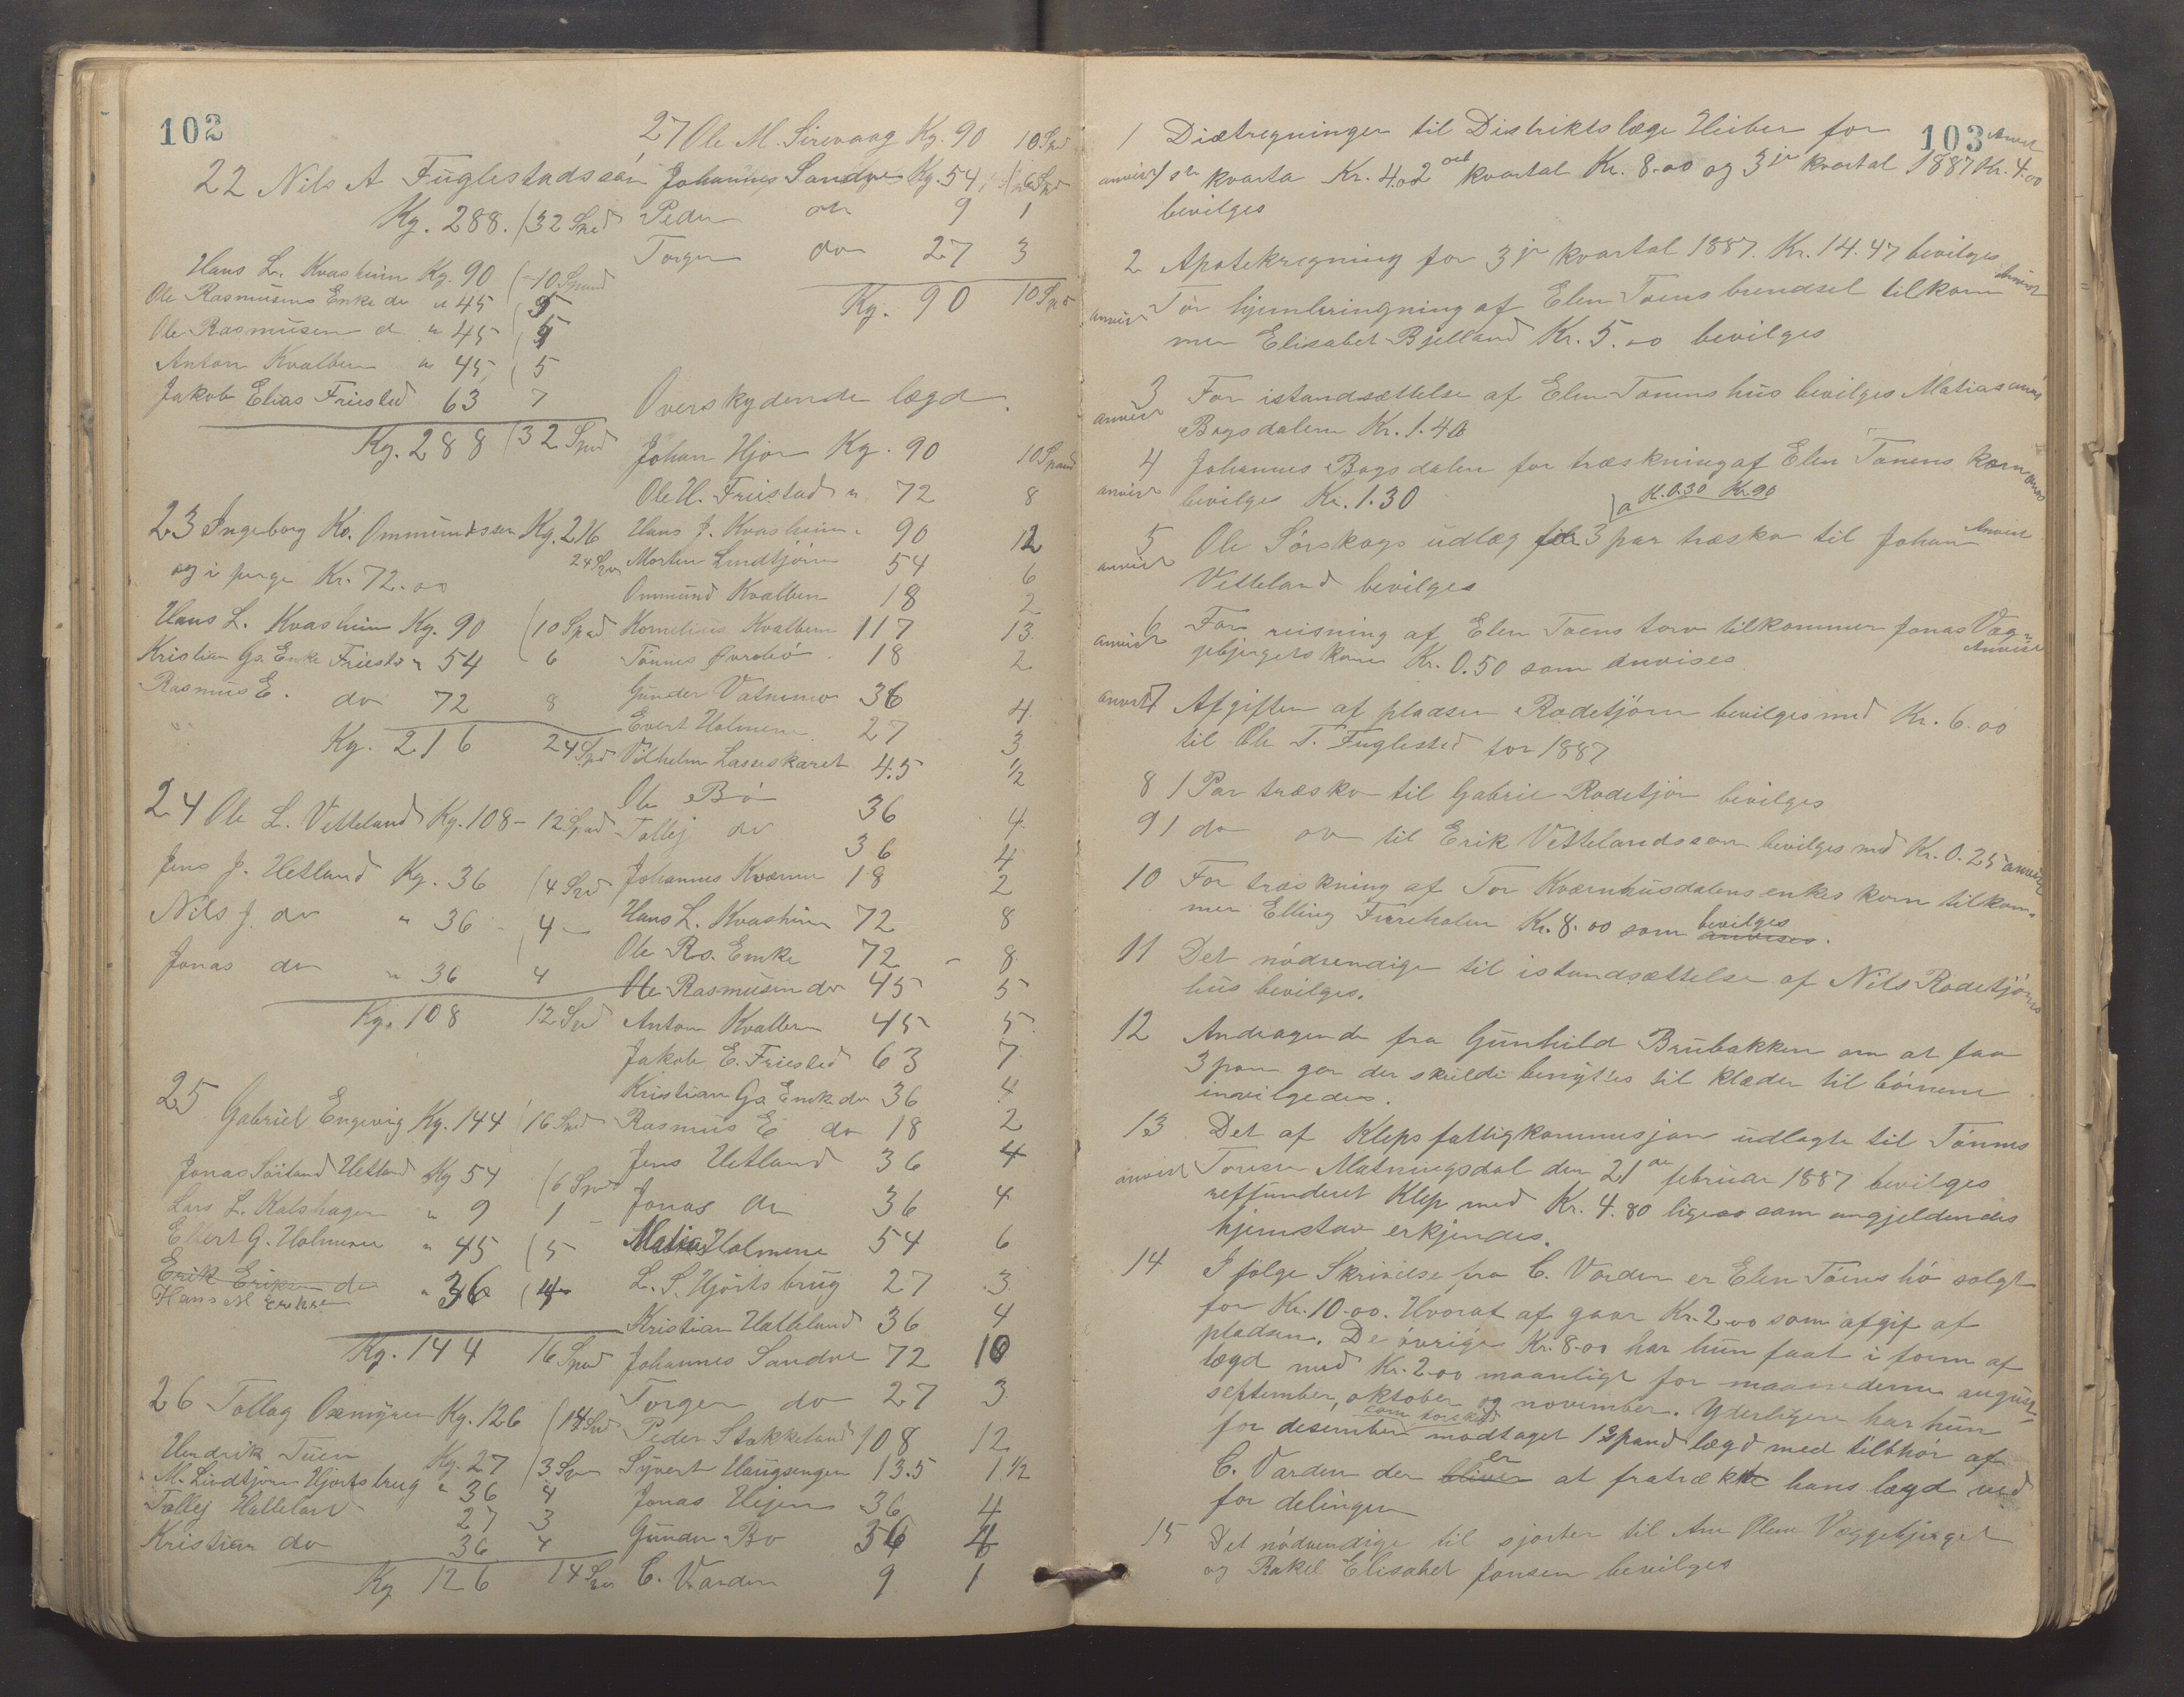 102
22 Nils A Fuglestadsøn
Kg. 288. (32 Spd
Hans L. Kvasheim Kg. 90 (-10 Spand
Ole Rasmusens Enke do " 45 (5
Ole Rasmusen do " 45 (5
Anton Kvalben " 45 (5
Jakob Elias Friested 63 7
Kg. 288 (32 Spd
23 Ingeborg Ommundssen Kg. 216
24 Spd
og i penge Kr. 72.00
Hans L. Kvasheim Kg. 90 (10 Spd
Kristian Gs. Enke Friested " 54 6
Rasmus E. do 72 8
Kg. 216 24 Spd
24 Ole L. Vetteland Kg. 108 - 12 Spd
Jens J. Hetland Kg. 36 (4 Spd
Nils J. do " 36 - 4 -
Jonas do " 36 4
Kg. 108 12 Spd
25 Gabriel Engevig Kg. 144 (16 Spd
Jonas Hetland Kg 54 (6 Spd
Lars L. Kalshagen " 9 1 -
Elbert G. Holmene " 45 (5
Erik Eriksen do " 36 (4
Hans M Eriksen
Kg. 144 16 Spd
26 Tollag Oxmyren Kg. 126 (14 Spd
Hendrik Tuen Kg. 27 (3 Spd
M. Lindtjørn Hjorts brug " 36 4
Tollej Hatteland 27 3
Kristian do 36 4
Kg 126 14 Spd
27 Ole M. Sirevaag Kg. 90 10 Spd
Johannes Sandve Kg. 54 6 Spd
Peder do 9 1
Torger do 27 3
Kg. 90 10 Spd
Overskydende lægd.
Johan Hjor Kg. 90 10 Spand
Ole H. Friestad " 72 8
Hans J. Kvasheim " 90 12
Morten Lindtjørn 54 6
Ommund Kvalben 18 2
Kornelius Kvalben 117 13.
Tønnes Øvrebø 18 2
Gunder Vatnemo 36 4
Evert Holmene 27 3
Vilhelm Lasseskaret 4.5 1/2
Ole Bø 36 4
Tollej do 36 4
Johannes Kværne 18 2
Hans L. Kvasheim 72 8
Ole Rs. Enke 72 - 8.
Ole Rasmusen do 45 5
Anton Kvalben 45 5
Jakob E. Friested 63 7
Kristian Gs Enke do 36 4
Rasmus E do 18 2
Jens Hetland 36 4
Jonas do 36 4
Matias Holmene 54 6
L. S. Hjorts brug 27 3
Kristian Hatteland 36 4
Johannes Sandve 72 10
Torger do 27 3
Peder Stokkeland 108 12
Syvert Haugsengen 13.5 1 1/2
Jonas Hejen 36 4
Gunder Bø 36 4
C. Varden 9 1
103
1 Diætregninger til Distriktslæge Hiiber for Anvist
anvist 1ste kvarta Kr. 4.00 2det kvartal Kr. 8.00 og 3je kvartal 1887 Kr. 4.00
bevilges
2 Apotekregning for 3je kvartal 1887. Kr. 14.47 bevilges anvist
anvist For hjembringning af Elen Toens brendsel tilkom
mer Elisabet Bjelland Kr. 5.00 bevilges
3 For istandsættelse af Elen Tonens hus bevilges Matias anvist
anvist Bogsdalen Kr. 1.40
4 Johannes Bogsdalen for træskning af Elen Tonens korn anvist
anvist bevilges Kr. 1.30
a Kr. 0.30 Kr. 90
5 Ole Sørskogs udlæg for 3 par træsko til Johan Anvist
anvist Vetteland bevilges
6 For reisning af Elen Toens torv tilkommer Jonas Væg
anvist gebjergets kone Kr. 0.50 som anvises Anvist
anvist 7 Afgiften af pladsen Rodetjørn bevilges med Kr. 6.00
til Ole T. Fuglested for 1887
8 1 Par træsko til Gabriel Rodetjør bevilges
9 1 do do til Erik Vettelandssøn bevilges med Kr. 0.25 anvist
10 For træskning af Tor Kværnhusdalens enkes korn tilkom
mer Elling Fureholen Kr. 8.00 som anvises bevilges.
11 Det nødvendige til istandsættelse af Nils Rodetjørns
hus bevilges.
12 Andragende fra Gunhild Brubakken om at faa
3 par gar der skulde benyttes til klæder til børnene
invilgedes.
13 Det af Kleps fattigkommisjon udlagte til Tønnes
anvist Toresen Matningsdal den 21de februar 1887 bevilges
reffunderet Klep med Kr. 4.80 ligesom angjeldendes
hjemstav erkjendes.
14 Ifølge Skrivelse fra C. Varden er Elen Tøens hø solgt
for Kr. 10.00. Hvoraf af gaar Kr. 2.00 som afgif af
pladsen. De øvrige Kr. 8.00 har hun faat i form af
lægd med Kr. 2.00 maanligt for maanederne august
september, oktober og november. Yderligere har hun
for desember som forskud modtaget 13 pand lægd med tilhør af
C. Varden der bliver er at fratrække hans lægd ved
for delingen
15 Det nødvendige til sjorter til Ane Olene Væggebjerget
og Rakel Elisabet Jonsen bevilges